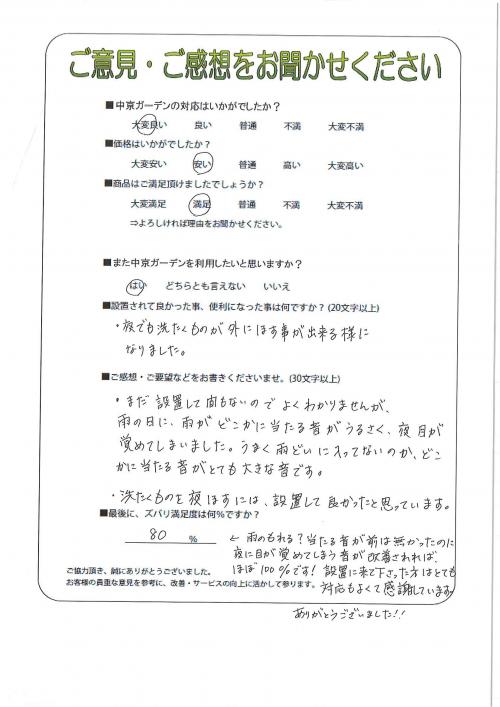 ご意見・ご感想をお聞かせください
■中京ガーデンの対応はいかがでしたか？
大変良い 良い 普通 不満 大変不満
■価格はいかがでしたか？
大変安い 安い 普通 高い 大変高い
■商品はご満足頂けましたでしょうか？
大変満足 満足 普通 不満 大変不満
⇒よろしければ理由をお聞かせください。
■また中京ガーデンを利用したいと思いますか？
はい どちらとも言えない いいえ
■設置されて良かった事、便利になった事は何ですか？(20文字以上)
・夜でも洗たくものが外にほす事が出来る様に
なりました。
■ご感想・ご要望などをお書きくださいませ。(30文字以上)
・まだ設置して間もないのでよくわかりませんが、
雨の日に、雨がどこかに当たる音がうるさく、夜目が
覚めてしまいました。うまく雨どいに入ってないのか、どこ
かに当たる音がとても大きな音です。
・洗たくものを夜ほすには、設置して良かったと思っています。
■最後に、ズバリ満足度は何%ですか？
80 %
← 雨のもれる？当たる音が前は無かったのに
夜に目が覚めてしまう音が改善されれば、
ほぼ100%です！設置に来て下さった方はとても
対応もよくて感謝しています。
ご協力頂き、誠にありがとうございました。
お客様の貴重な意見を参考に、改善・サービスの向上に活かして参ります。
ありがとうございました！！